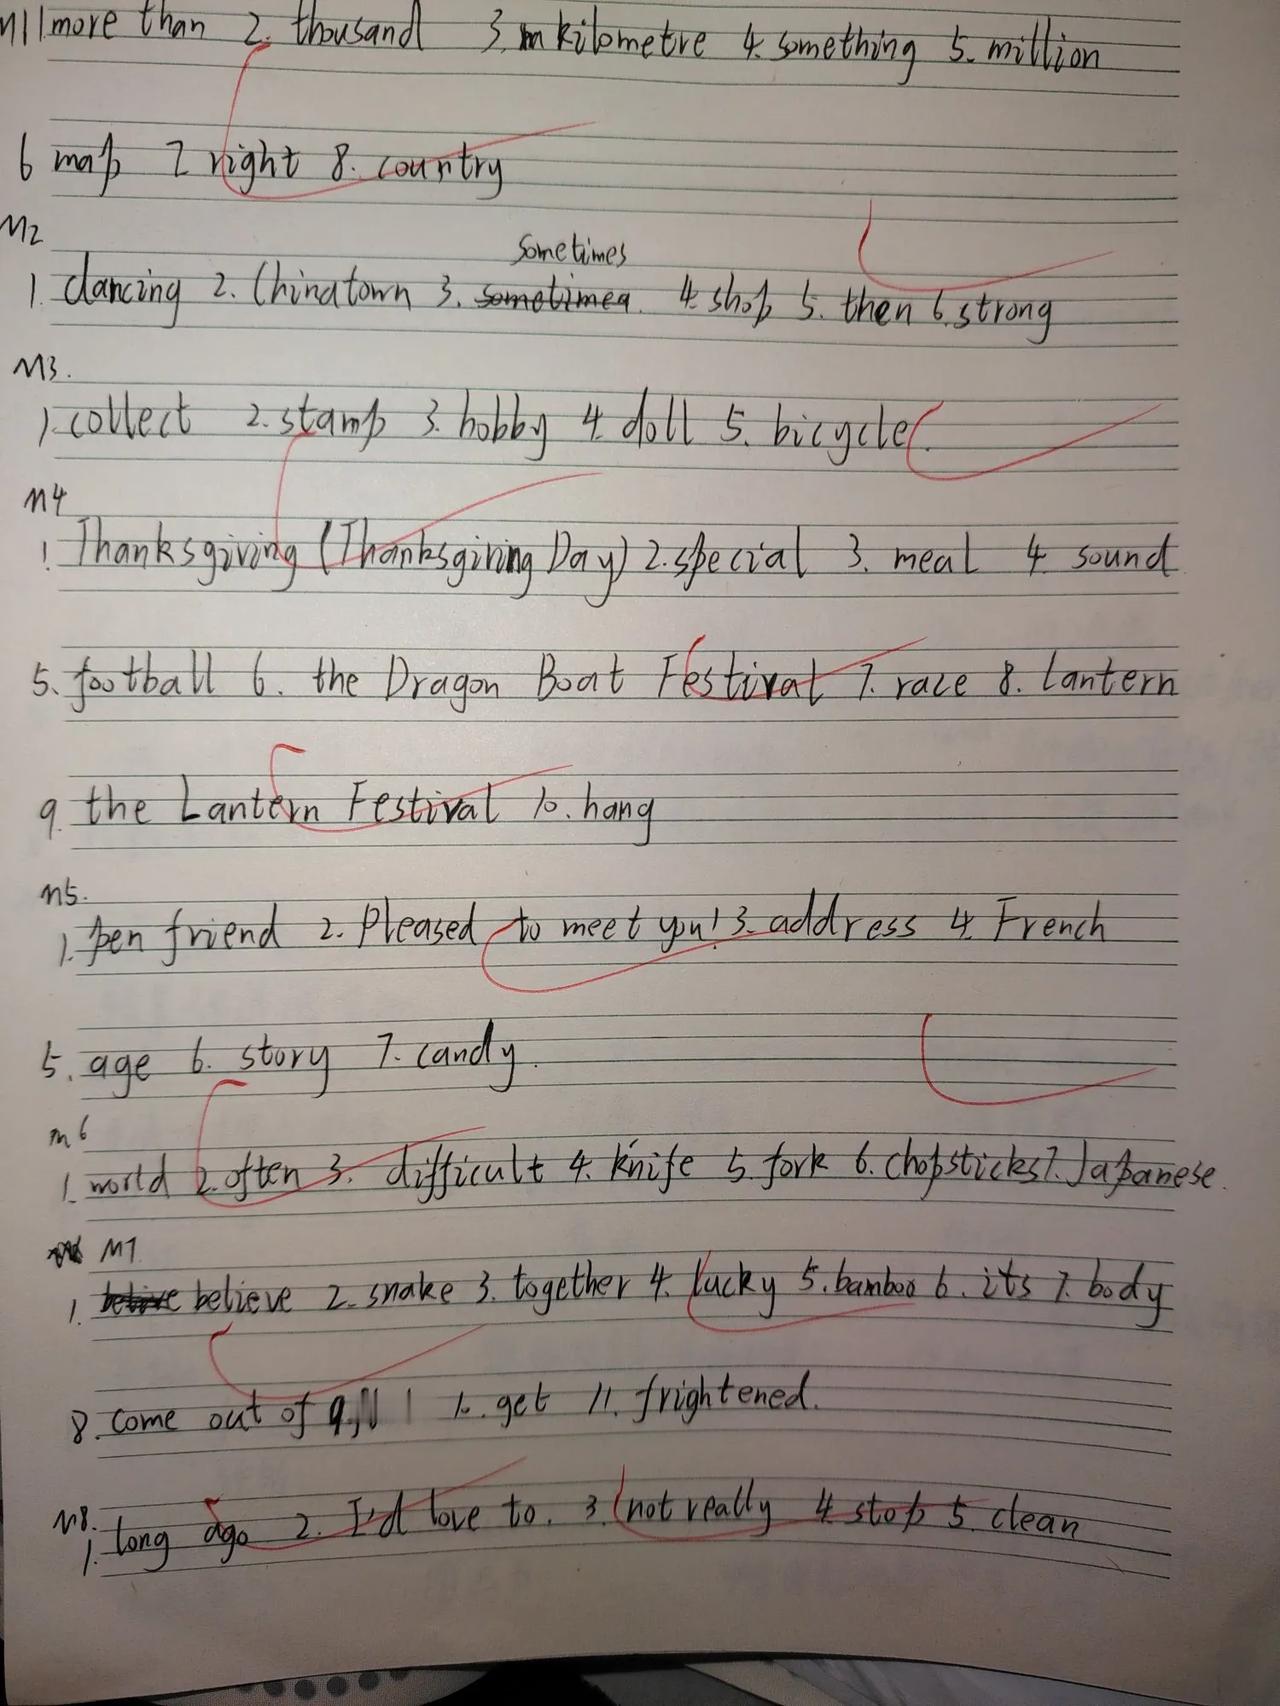 M1 1 more than 2. thousand 3. kilometre 4. something 5. million
6 map 7 right 8. country
M2
sometimes
1. dancing 2. Chinatown 3. sometimea 4. shop 5. then 6. strong
M3.
1. collect 2. stamp 3. hobby 4. doll 5. bicycle.
M4
1. Thanksgiving (Thanksgiving Day) 2. special 3. meal 4. sound
5. football 6. the Dragon Boat Festival 7. race 8. lantern
9. the Lantern Festival 10. hang
M5.
1. pen friend 2. Pleased to meet you! 3. address 4. French
5. age 6. story 7. candy.
m6
1. world 2. often 3. difficult 4. knife 5. fork 6. chopsticks 7. Japanese.
M7
1. believe 2. snake 3. together 4. lucky 5. bamboo 6. its 7. body
8. come out of 9. 10. get 11. frightened.
M8.
1. long ago 2. I'd love to. 3. not really 4. stop 5. clean